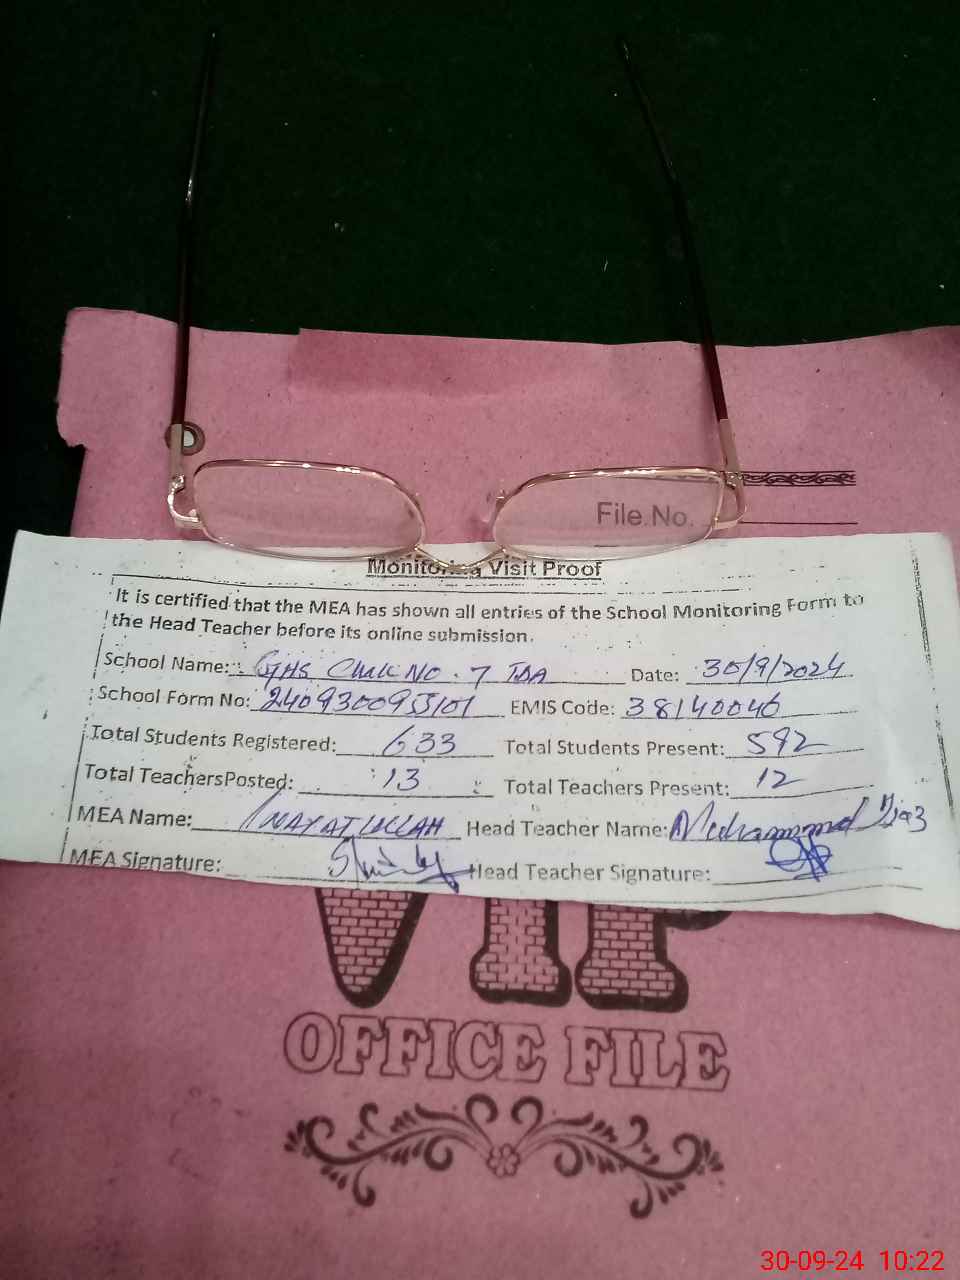 File No.
Monitoring Visit Proof
It is certified that the MEA has shown all entries of the School Monitoring Form to
the Head Teacher before its online submission.
School Name: GHS Chak No. 7 TDA Date: 30/9/2024
School Form No: EMIS Code: 38140046
Total Students Registered: 633 Total Students Present: 592
Total TeachersPosted: 13 Total Teachers Present: 12
MEA Name: INAYAT ULLAH Head Teacher Name: Muhammad
MEA Signature: Head Teacher Signature:
VIP
OFFICE FILE
30-09-24 10:22